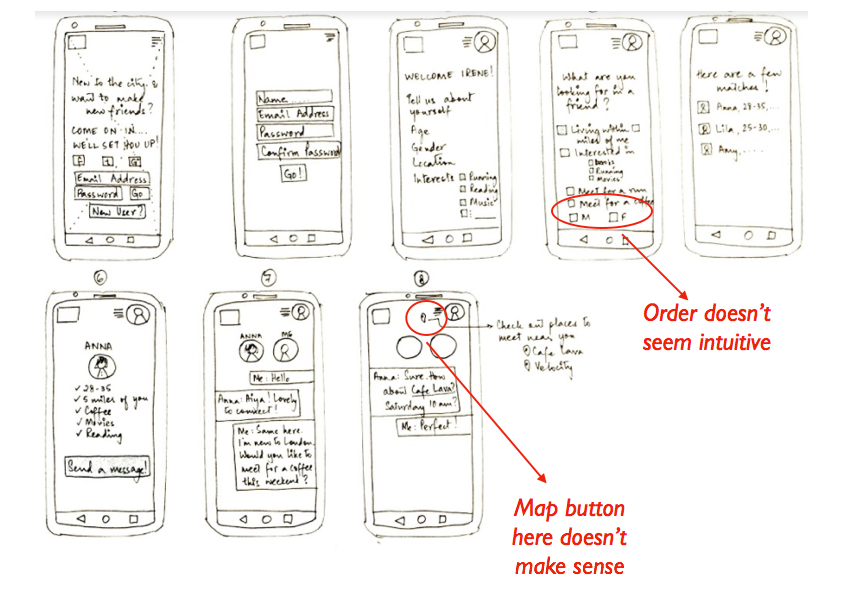 New to the city, &
want to make
new friends?
COME ON IN...
WE'LL SET YOU UP!
f t G+
Email Address
Password Go
New User?
Name
Email Address
Password
Confirm Password
Go!
WELCOME IRENE!
Tell us about
yourself
Age
Gender
Location
Interests Running
Reading
Music
What are you
looking for in a
friend?
Living within
miles of me
Interested in
books
Running
movies
Meet for a run
Meet for a coffee
M F
Here are a few
matches!
Anna, 28-35,...
Lila, 25-30,...
Amy,....
Order doesn't
seem intuitive
6
ANNA
✓ 28-35
✓ 5 miles of you
✓ Coffee
✓ Movies
✓ Reading
Send a message!
7
ANNA ME
Me: Hello
Anna: Hiya! Lovely
to connect!
Me: Same here.
I'm new to London.
Would you like to
meet for a coffee
this weekend?
8
Anna: Sure. How
about Cafe Lava?
Saturday 10 am?
Me: Perfect!
Check out places to
meet near you
Cafe Lava
Velocity
Map button
here doesn't
make sense